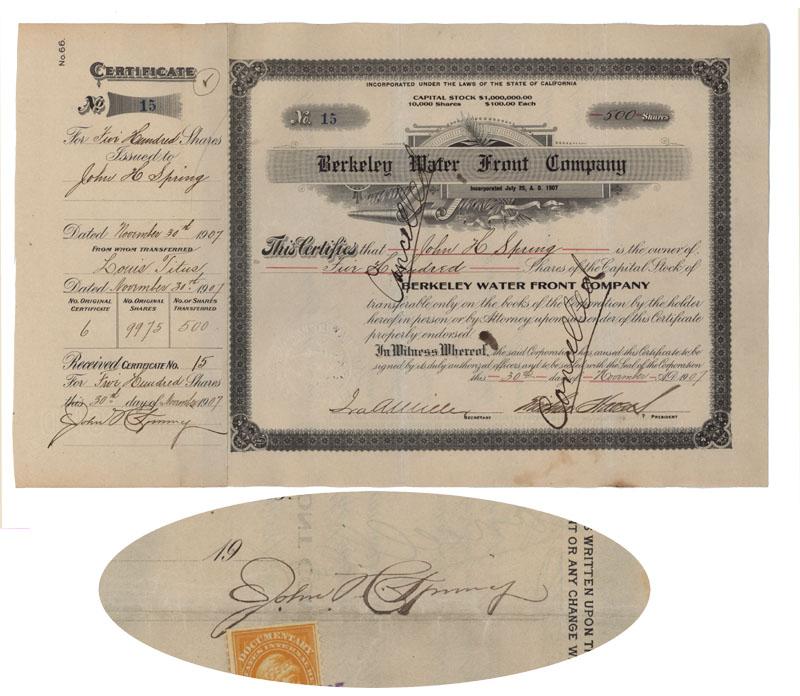 No. 66.
CERTIFICATE
No. 15
For Five Hundred Shares
Issued to
John H Spring
Dated November 30th 1907
FROM WHOM TRANSFERRED
Louis Titus
Dated November 30th 1907
NO. ORIGINAL CERTIFICATE NO. ORIGINAL SHARES NO. OF SHARES TRANSFERRED
6 9975 500
Received CERTIFICATE NO. 15
For Five Hundred Shares
this 30th day of November 1907
John H Spring
INCORPORATED UNDER THE LAWS OF THE STATE OF CALIFORNIA
CAPITAL STOCK $1,000,000.00
10,000 Shares $100.00 Each
No. 15
500 Shares
Berkeley Water Front Company
Incorporated July 25, A. D. 1907
This Certifies that John H Spring is the owner of
Five Hundred Shares of the Capital Stock of
BERKELEY WATER FRONT COMPANY
transferable only on the books of the Corporation by the holder
hereof in person or by Attorney upon surrender of this Certificate
properly endorsed.
In Witness Whereof, the said Corporation has caused this Certificate to be
signed by its duly authorized officers and to be sealed with the Seal of the Corporation
this 30th day of November A.D. 1907
SECRETARY
PRESIDENT
Cancelled
Cancelled
19
John H Spring
DOCUMENTARY
S WRITTEN UPON T
NT OR ANY CHANGE W